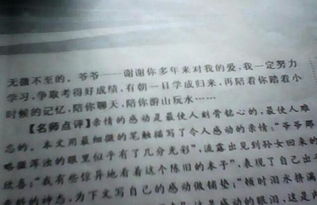 无微不至的。爷爷——谢谢你多年来对我的爱，我一定努力
学习，争取考得好成绩，有朝一日学成归来，再陪着你踏着小
时候的记忆，陪你聊天，陪你游山玩水……
【名师点评】亲情的感动是最使人刻骨铭心的，最使人难
忘的。本文用最细微的笔触描写了令人感动的亲情：“爷爷那
略微浑浊的眼里似乎有了几分光彩”，流露出见到孙女回来的
欣喜；“我有些惊异地看着这个陈旧的本子”，表现了自己
的神态，为下文写自己的感动做铺垫；“顿时泪水挤满
的眼泪，这是